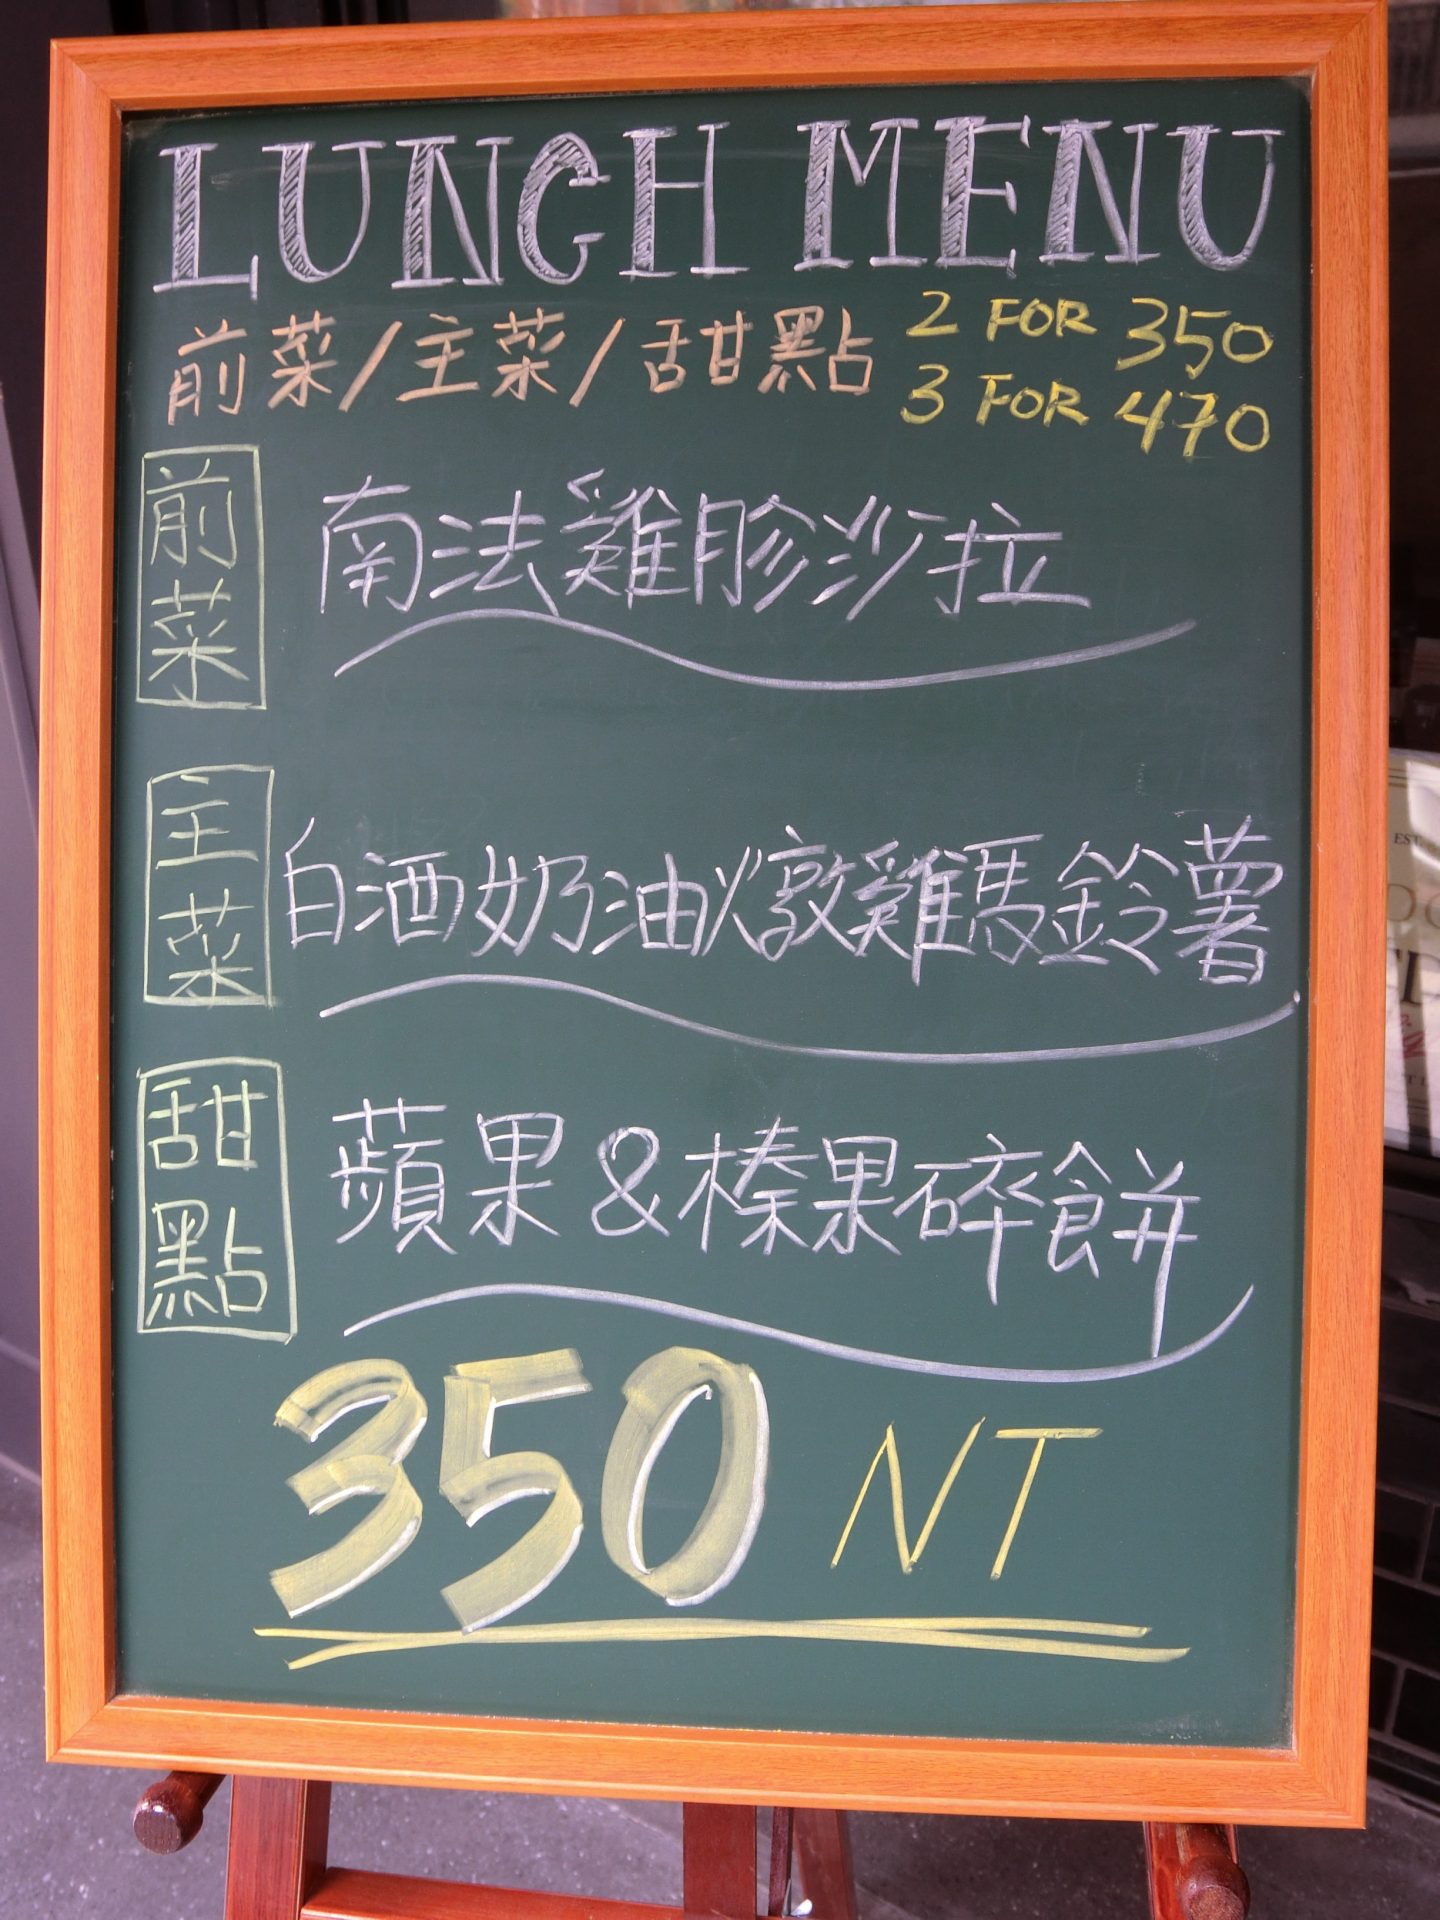 LUNCH MENU
前菜/主菜/甜點
2 FOR 350
3 FOR 470
前菜
南法雞胗沙拉
主菜
白酒奶油燉雞馬鈴薯
甜點
蘋果&榛果碎餅
350 NT
EST